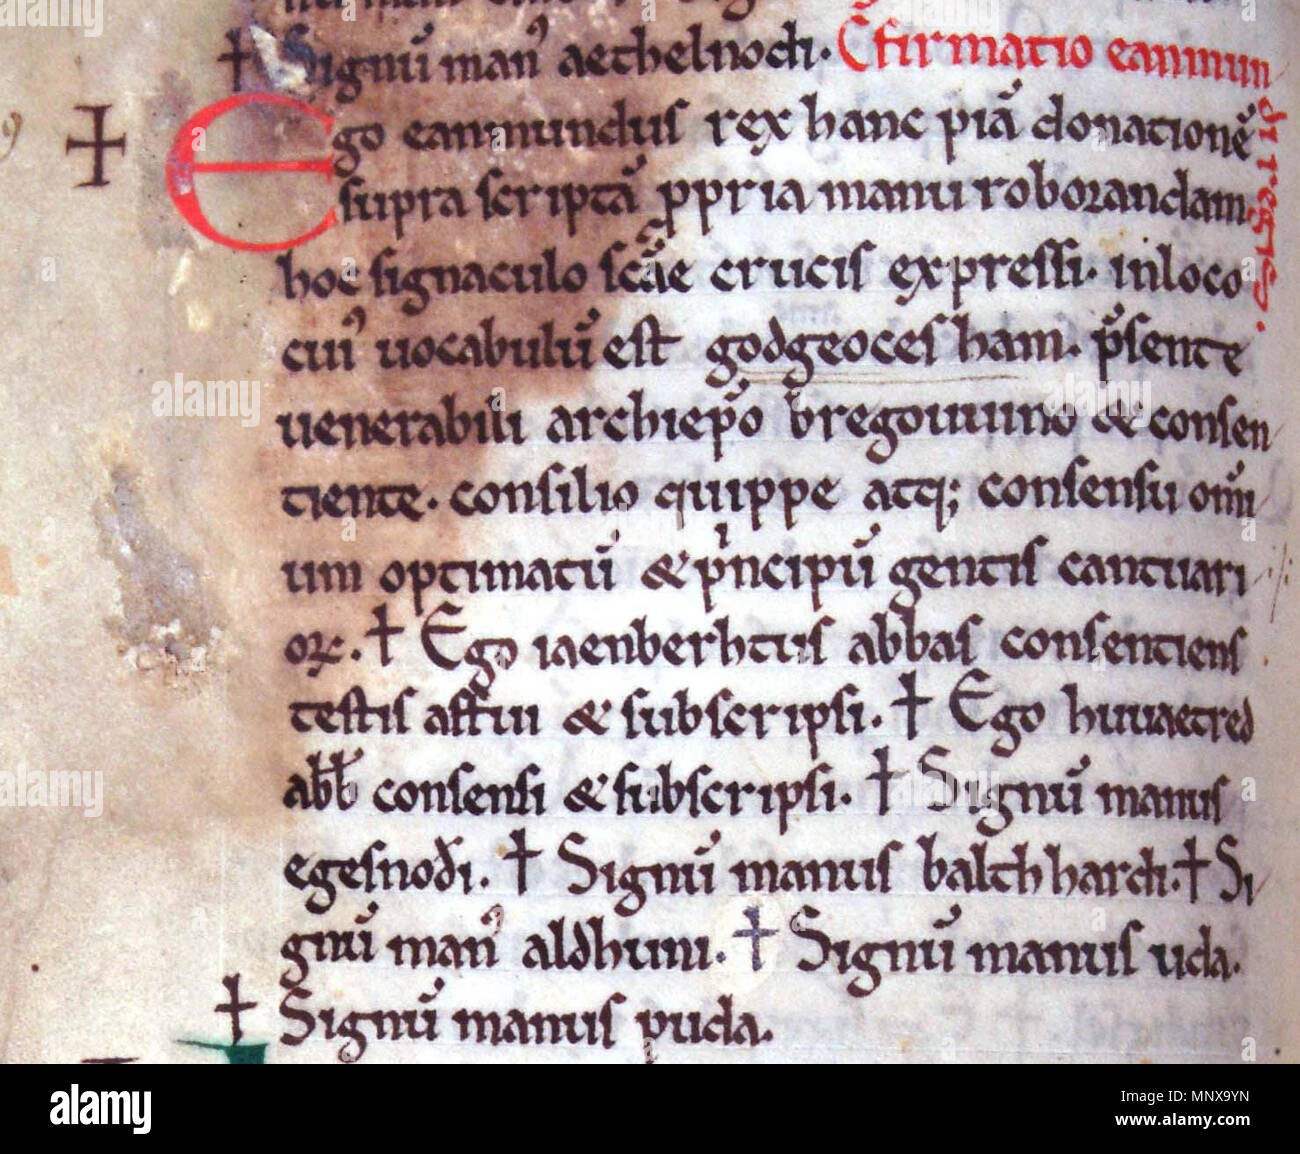 † Signū man᾽ aethelnothi. Cfirmatio eanmun
di regis.
Ego eanmundus rex hanc piā donationē
supra scriptā ꝓpria manu roborandam
hoc signaculo scāe crucis expressi. in loco
cui᾽ uocabulū est godgeoces ham. p̄sente
uenerabili archiep̄o bregouuino & consen
tiente. consilio quippe atq; consensu om̄i
um optimatū & pⁱncipū gentis cantuari
oꝝ. † Ego iaenberhtus abbas consentiens
testis affui & subscripsi. † Ego huuaetred
abb̄ consensi & subscripsi. † Signū manus
egesnoði. † Signū manus balthhardi. † Si
gnū man᾽ aldhuni. † Signū manus uda.
† Signū manus puda.
alamy
Image ID: MNX9YN
www.alamy.com